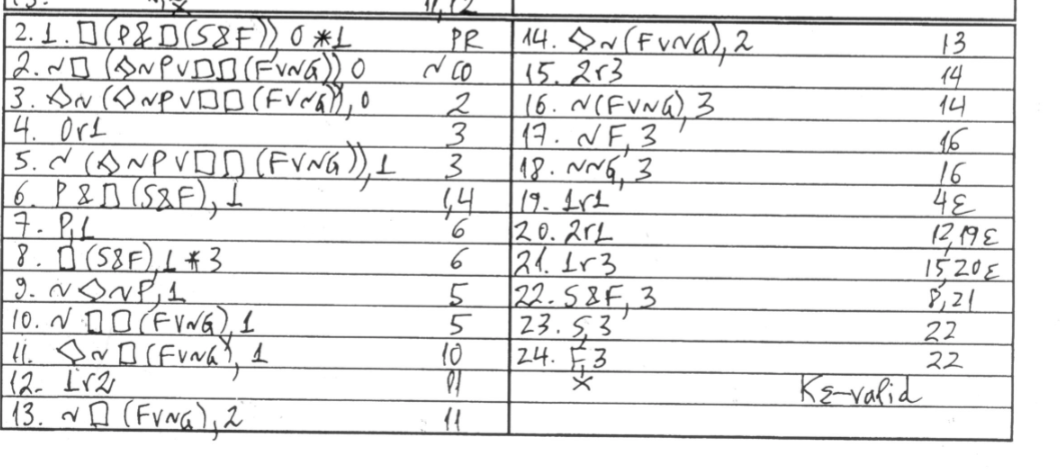 2. 1. □(P&□(S&F)) 0 *1 PR
2. ~□(◇~P∨□□(F∨~G)) 0 ~CO
3. ◇~(◇~P∨□□(F∨~G)), 0 2
4. 0r1 3
5. ~(◇~P∨□□(F∨~G)), 1 3
6. P&□(S&F), 1 1,4
7. P,1 6
8. □(S&F),1 *3 6
9. ~◇~P,1 5
10. ~□□(F∨~G), 1 5
11. ◇~□(F∨~G), 1 10
12. 1r2 11
13. ~□(F∨~G), 2 11
14. ◇~(F∨~G), 2 13
15. 2r3 14
16. ~(F∨~G), 3 14
17. ~F, 3 16
18. ~~G, 3 16
19. 1r1 4ε
20. 2r1 12,19ε
21. 1r3 15,20ε
22. S&F, 3 8,21
23. S,3 22
24. F,3 22
×
Kε-valid